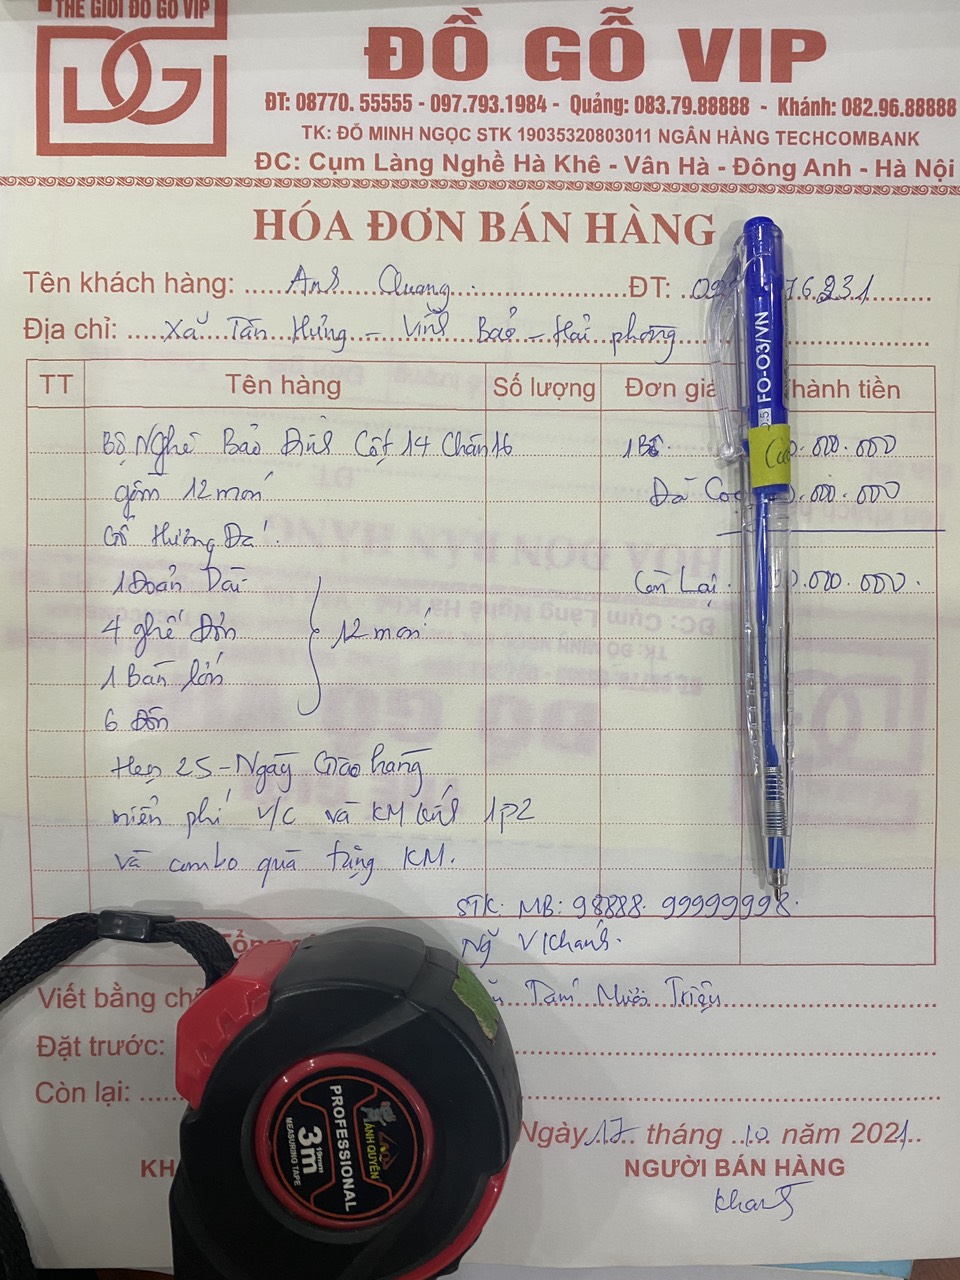 THẾ GIỚI ĐỒ GỖ VIP
DG
ĐỒ GỖ VIP
ĐT: 08770. 55555 - 097.793.1984 - Quảng: 083.79.88888 - Khánh: 082.96.88888
TK: ĐỖ MINH NGỌC STK 19035320803011 NGÂN HÀNG TECHCOMBANK
ĐC: Cụm Làng Nghề Hà Khê - Vân Hà - Đông Anh - Hà Nội
HÓA ĐƠN BÁN HÀNG
Tên khách hàng: Anh Quang ĐT: 76231
Địa chỉ: Xã Tân Hưng - Vĩnh Bảo - Hải phòng
TT Tên hàng Số lượng Đơn giá Thành tiền
Bộ Nghê Bảo Đỉnh Cột 14 Chân 16 1 Bộ 0.000.000
gồm 12 món Đã Cọc 0.000.000
Gỗ Hương Đá
1 Đoản Dài Còn Lại 00.000.000
4 ghế Đơn 12 món
1 Bàn lớn
6 Đôn
Hẹn 25 - Ngày Giao hàng
miễn phí V/C và KM kính 1p2
và combo quà tặng KM.
STK: MB: 98888 99999998
Ng V Khánh
Viết bằng Tám Mươi Triệu
Đặt trước:
Còn lại:
Ngày 17 tháng 10 năm 2021
KH NGƯỜI BÁN HÀNG
Khánh
FO-O3/VN
0.5
ÁNH QUYÊN
PROFESSIONAL
3m
19mm
MEASURING TAPE